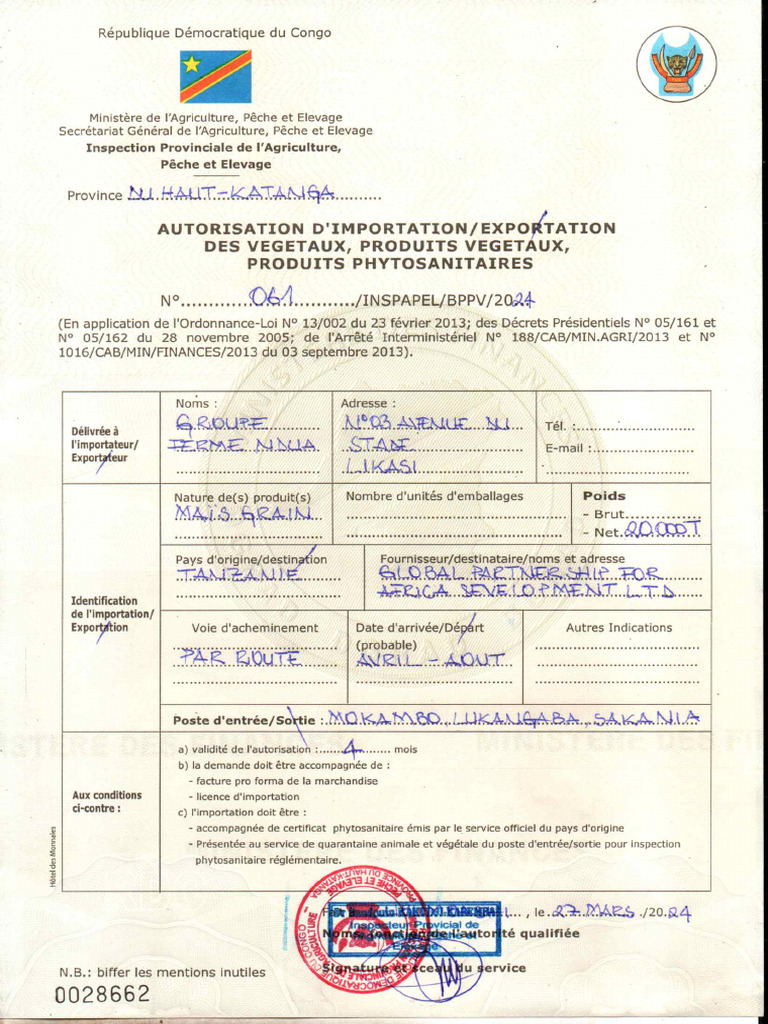 République Démocratique du Congo
Ministère de l'Agriculture, Pêche et Elevage
Secrétariat Général de l'Agriculture, Pêche et Elevage
Inspection Provinciale de l'Agriculture,
Pêche et Elevage
Province DU HAUT-KATANGA
AUTORISATION D'IMPORTATION/EXPORTATION
DES VEGETAUX, PRODUITS VEGETAUX,
PRODUITS PHYTOSANITAIRES
N°......061....../INSPAPEL/BPPV/2024
(En application de l'Ordonnance-Loi N° 13/002 du 23 février 2013; des Décrets Présidentiels N° 05/161 et
N° 05/162 du 28 novembre 2005; de l'Arrêté Interministériel N° 188/CAB/MIN.AGRI/2013 et N°
1016/CAB/MIN/FINANCES/2013 du 03 septembre 2013).
Délivrée à
l'importateur/
Exportateur
Noms :
GROUPE
FERME NDUA
Adresse :
N°03 AVENUE DU
STADE
LIKASI
Tél. :
E-mail :
Identification
de l'importation/
Exportation
Nature de(s) produit(s)
MAÏS GRAIN
Nombre d'unités d'emballages
Poids
- Brut
- Net 20.000T
Pays d'origine/destination
TANZANIE
Fournisseur/destinataire/noms et adresse
GLOBAL PARTNERSHIP FOR
AFRICA DEVELOPMENT LTD
Voie d'acheminement
PAR ROUTE
Date d'arrivée/Départ
(probable)
AVRIL - AOUT
Autres Indications
Poste d'entrée/Sortie : MOKAMBO, LUKANGABA, SAKANIA
Aux conditions
ci-contre :
a) validité de l'autorisation : 4 mois
b) la demande doit être accompagnée de :
- facture pro forma de la marchandise
- licence d'importation
c) l'importation doit être :
- accompagnée de certificat phytosanitaire émis par le service officiel du pays d'origine
- Présentée au service de quarantaine animale et végétale du poste d'entrée/sortie pour inspection
phytosanitaire réglémentaire.
Hôtel des Monnaies
, le 27 MARS /2024
Inspecteur Provicial de
Noms, fonction de l'autorité qualifiée
Signature et sceau du service
N.B.: biffer les mentions inutiles
0028662